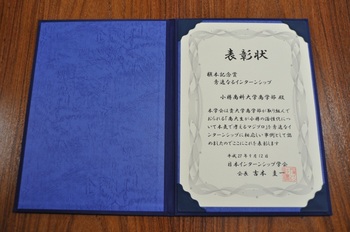 表彰状
槇本記念賞
秀逸なるインターンシップ
小樽商科大学商学部 殿
本学会は貴大学商学部が取り組んで
おられる「商大生が小樽の活性化につ
いて本気で考える(マジプロ)」を秀逸なる
インターンシップに相応しい事例として認
め的たのでここにこれを表彰します
平成27年9月12日
日本インターンシップ学会
会長 吉本 圭一